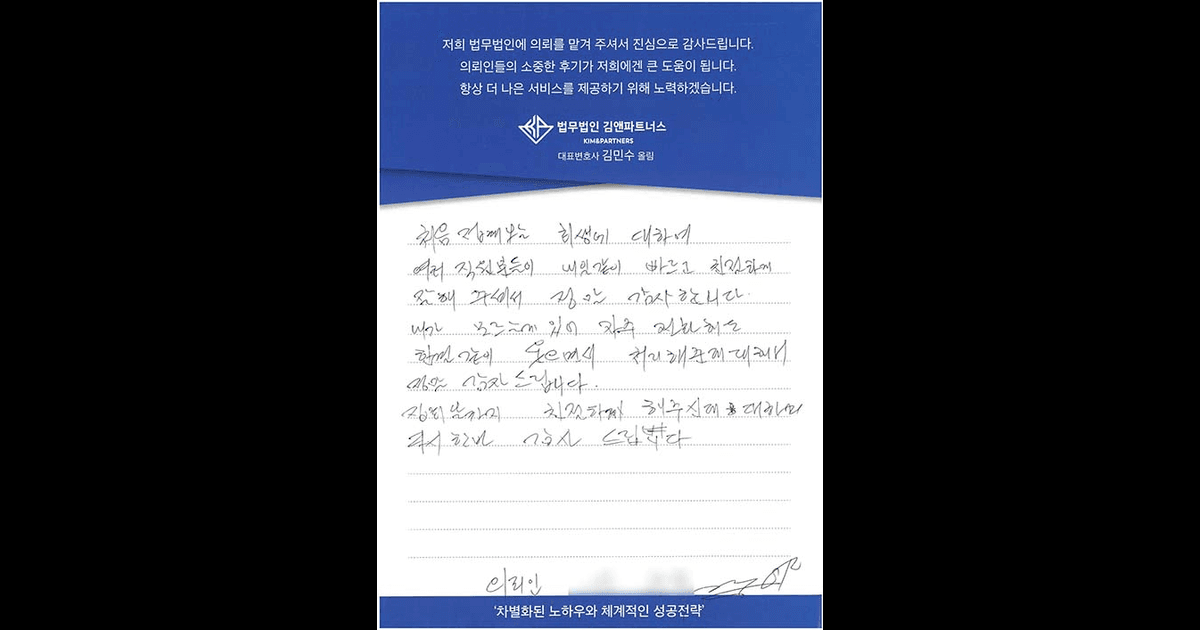 저희 법무법인에 의뢰를 맡겨 주셔서 진심으로 감사드립니다.
의뢰인들의 소중한 후기가 저희에겐 큰 도움이 됩니다.
항상 더 나은 서비스를 제공하기 위해 노력하겠습니다.
법무법인 김앤파트너스
KIM&PARTNERS
대표변호사 김민수 올림
처음 접해보는 회생에 대하여
여러 직원분들이 내일같이 빠르고 친절하게
잘해 주셔서 정말 감사합니다.
내가 모르는게 있어 자주 전화해도
한결같이 웃으면서 처리해준데 대해서
정말 감사드립니다.
친절하게 해주신데 대하여
다시한번 감사 드립니다
의뢰인
'차별화된 노하우와 체계적인 성공전략'